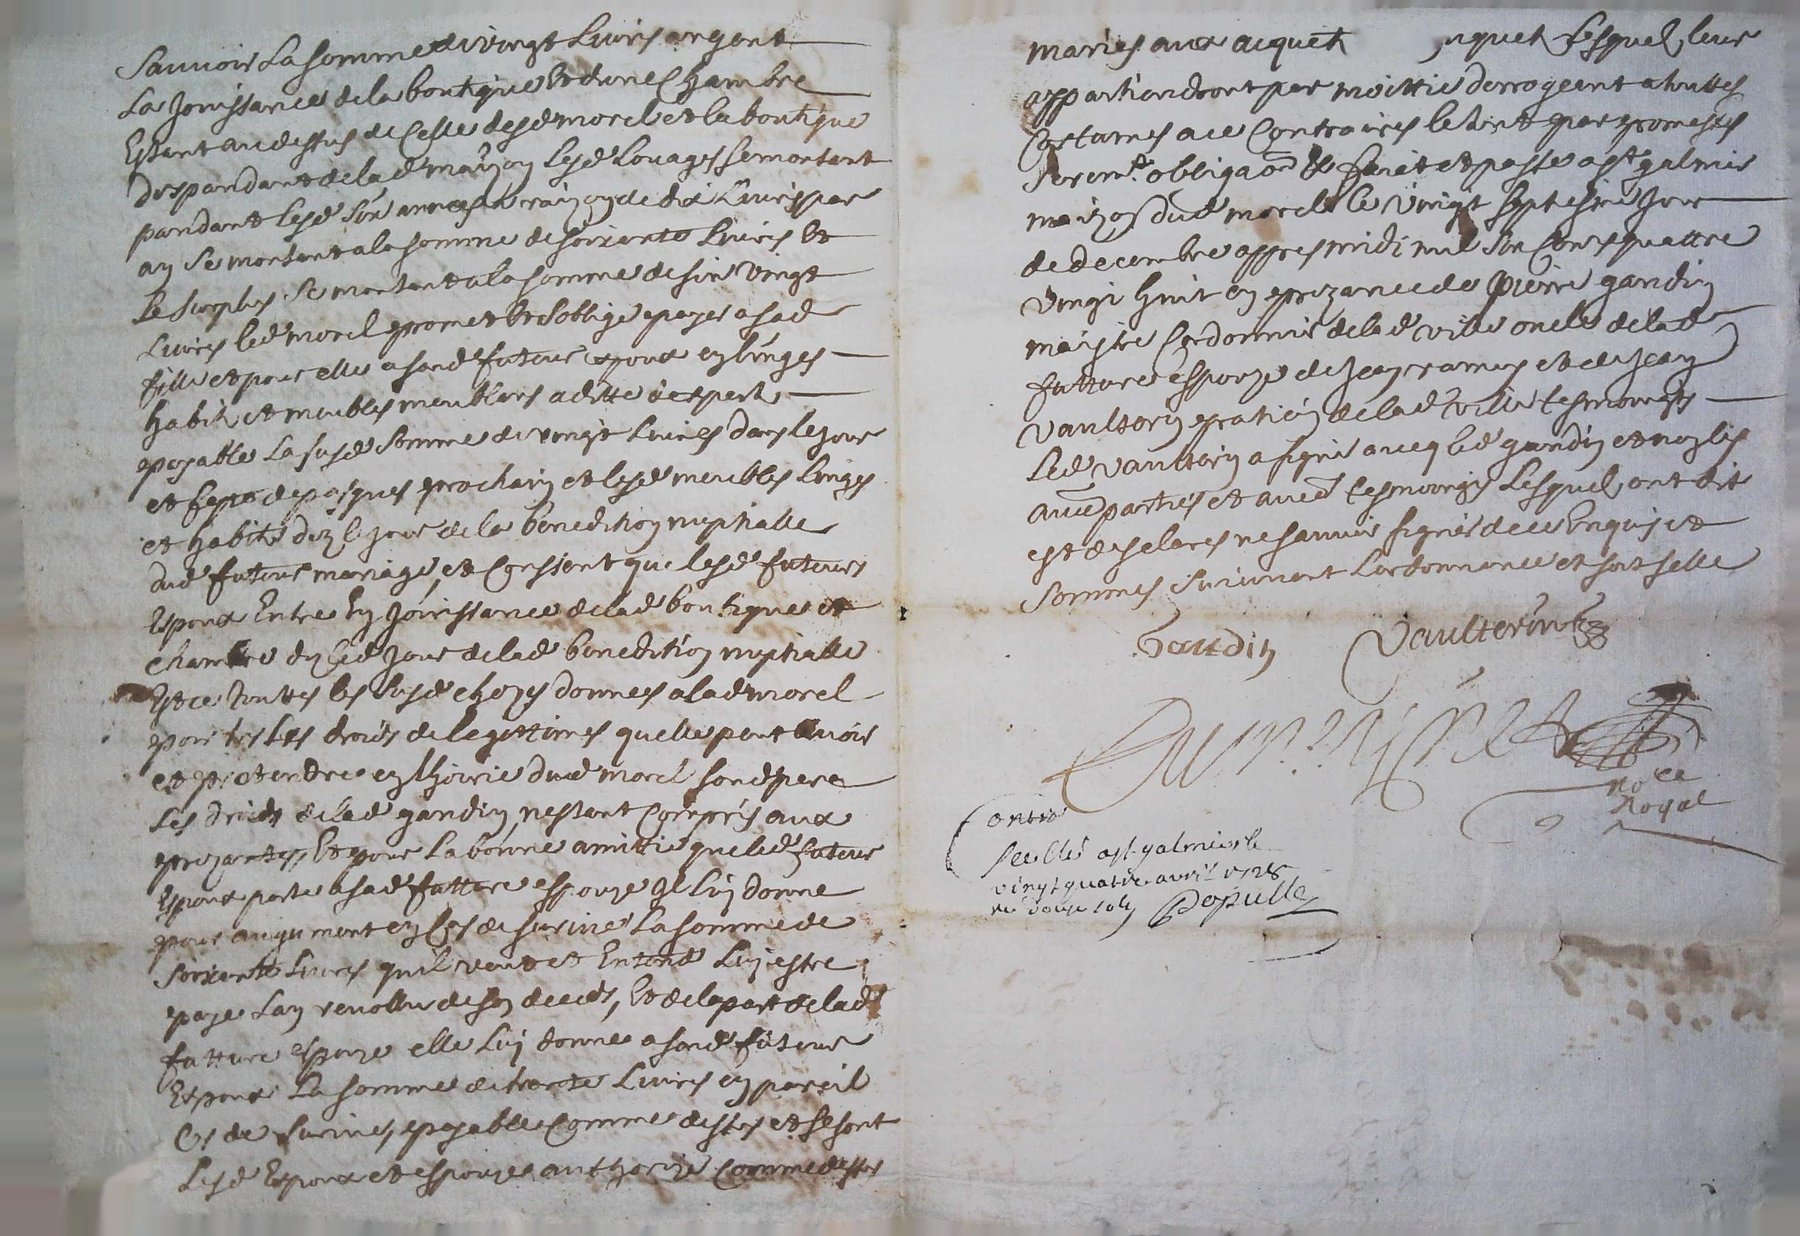 Scauoir La somme de vingt Liures argent
La Jouissance de la boutique Et dune Chambre
Estant au dessus de Celle desd morel et la boutique
despandante de lad maizon Lesd Louages Se montant
pandant lesd six annees a raizon de dix Liures par
an Se montant a la somme de soixante Liures Et
Le surplus Se montant a la somme de six vingt
Liures led morel promet Et soblige payer a sad
fille et pour elle a sond futeur Espoux en linges
habitz et meubles meublans a ditte dexpert
payable La susd Somme de vingt Liures dans le jour
et feste de pasques prochain et lesd meubles linges
et habitz dez le jour de la benedition nuptialle
dud futeur mariage, et Conssent que lesd futeurs
Espoux Entre En Jouissance de lad boutique et
chambre dez led Jour de lad benedition nuptialle
Et ce toutes les susd chozes donnees a lad morel
pour tous Les droits de legittimes quelle peut avoir
et pretendre en lhoirie dud morel sond pere
Les droits de lad gaudin nestant Compris aux
prezantes, Et pour La bonne amittie que led futeur
Espoux porte a sad futture espouze Il Luy donne
pour augument en Cas de suruie La somme de
soixante Liures quil veut et Entend Luy estre
paye Lan reuollu de son deces, Et de la part de lad
futture espouze elle Luy donne a sond futeur
Espoux La somme de trente Liures en pareil
Cas de suruie, payable Comme dessus et se sont
Lesd Espoux et espouze authorize Comme dessus
mariés aux acquet nquet Lesquels leur
appartiendront par moittie derrogeant a touttes
Coutumes a ce Contraires le tout par promesses
serem.t obliga.on &c fait et passe a st galmier
maizon dud morel le vingt septiesme Jour
de decembre appres midi mil six Cents quattre
vingt huit en prezance de pierre gaudin
maistre Cordonnier de lad ville oncle de lad
futture espouze de Jean ramus et de Jean
vaulterin praticien de lad ville tesmoings
Led vaulterin a signé aucq led gaudin et non les
autres parties et autre tesmoings Lesquels ont dit
et desclares ne sauoir signer de ce Enquis et
Sommes suiuant Lordonnance et soit selle
Gaudin Vaulterin
no.re
Royal
Contre
seellé a st galmier le
vingt quatre auril 1728
reçu douze sols Depulle